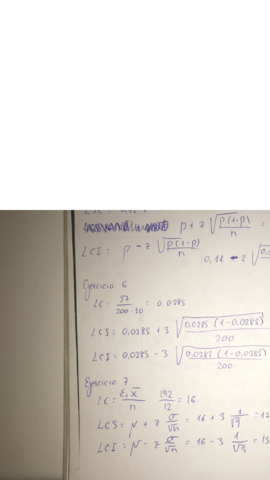 p + z √p(1-p)/n =
LCI = p - z √p(1-p)/n 0,11 - 2 √
Ejercicio 6
LC = 57/200·10 = 0,0285
LCS = 0,0285 + 3 √0,0285 (1-0,0285)/200
LCI = 0,0285 - 3 √0,0285 (1-0,0285)/200
Ejercicio 7
LC = Σ x̄/n 192/12 = 16
LCS = μ + z σ/√n = 16 + 3 1/√9 = 17
LCI = μ - z σ/√n = 16 - 3 1/√9 = 15